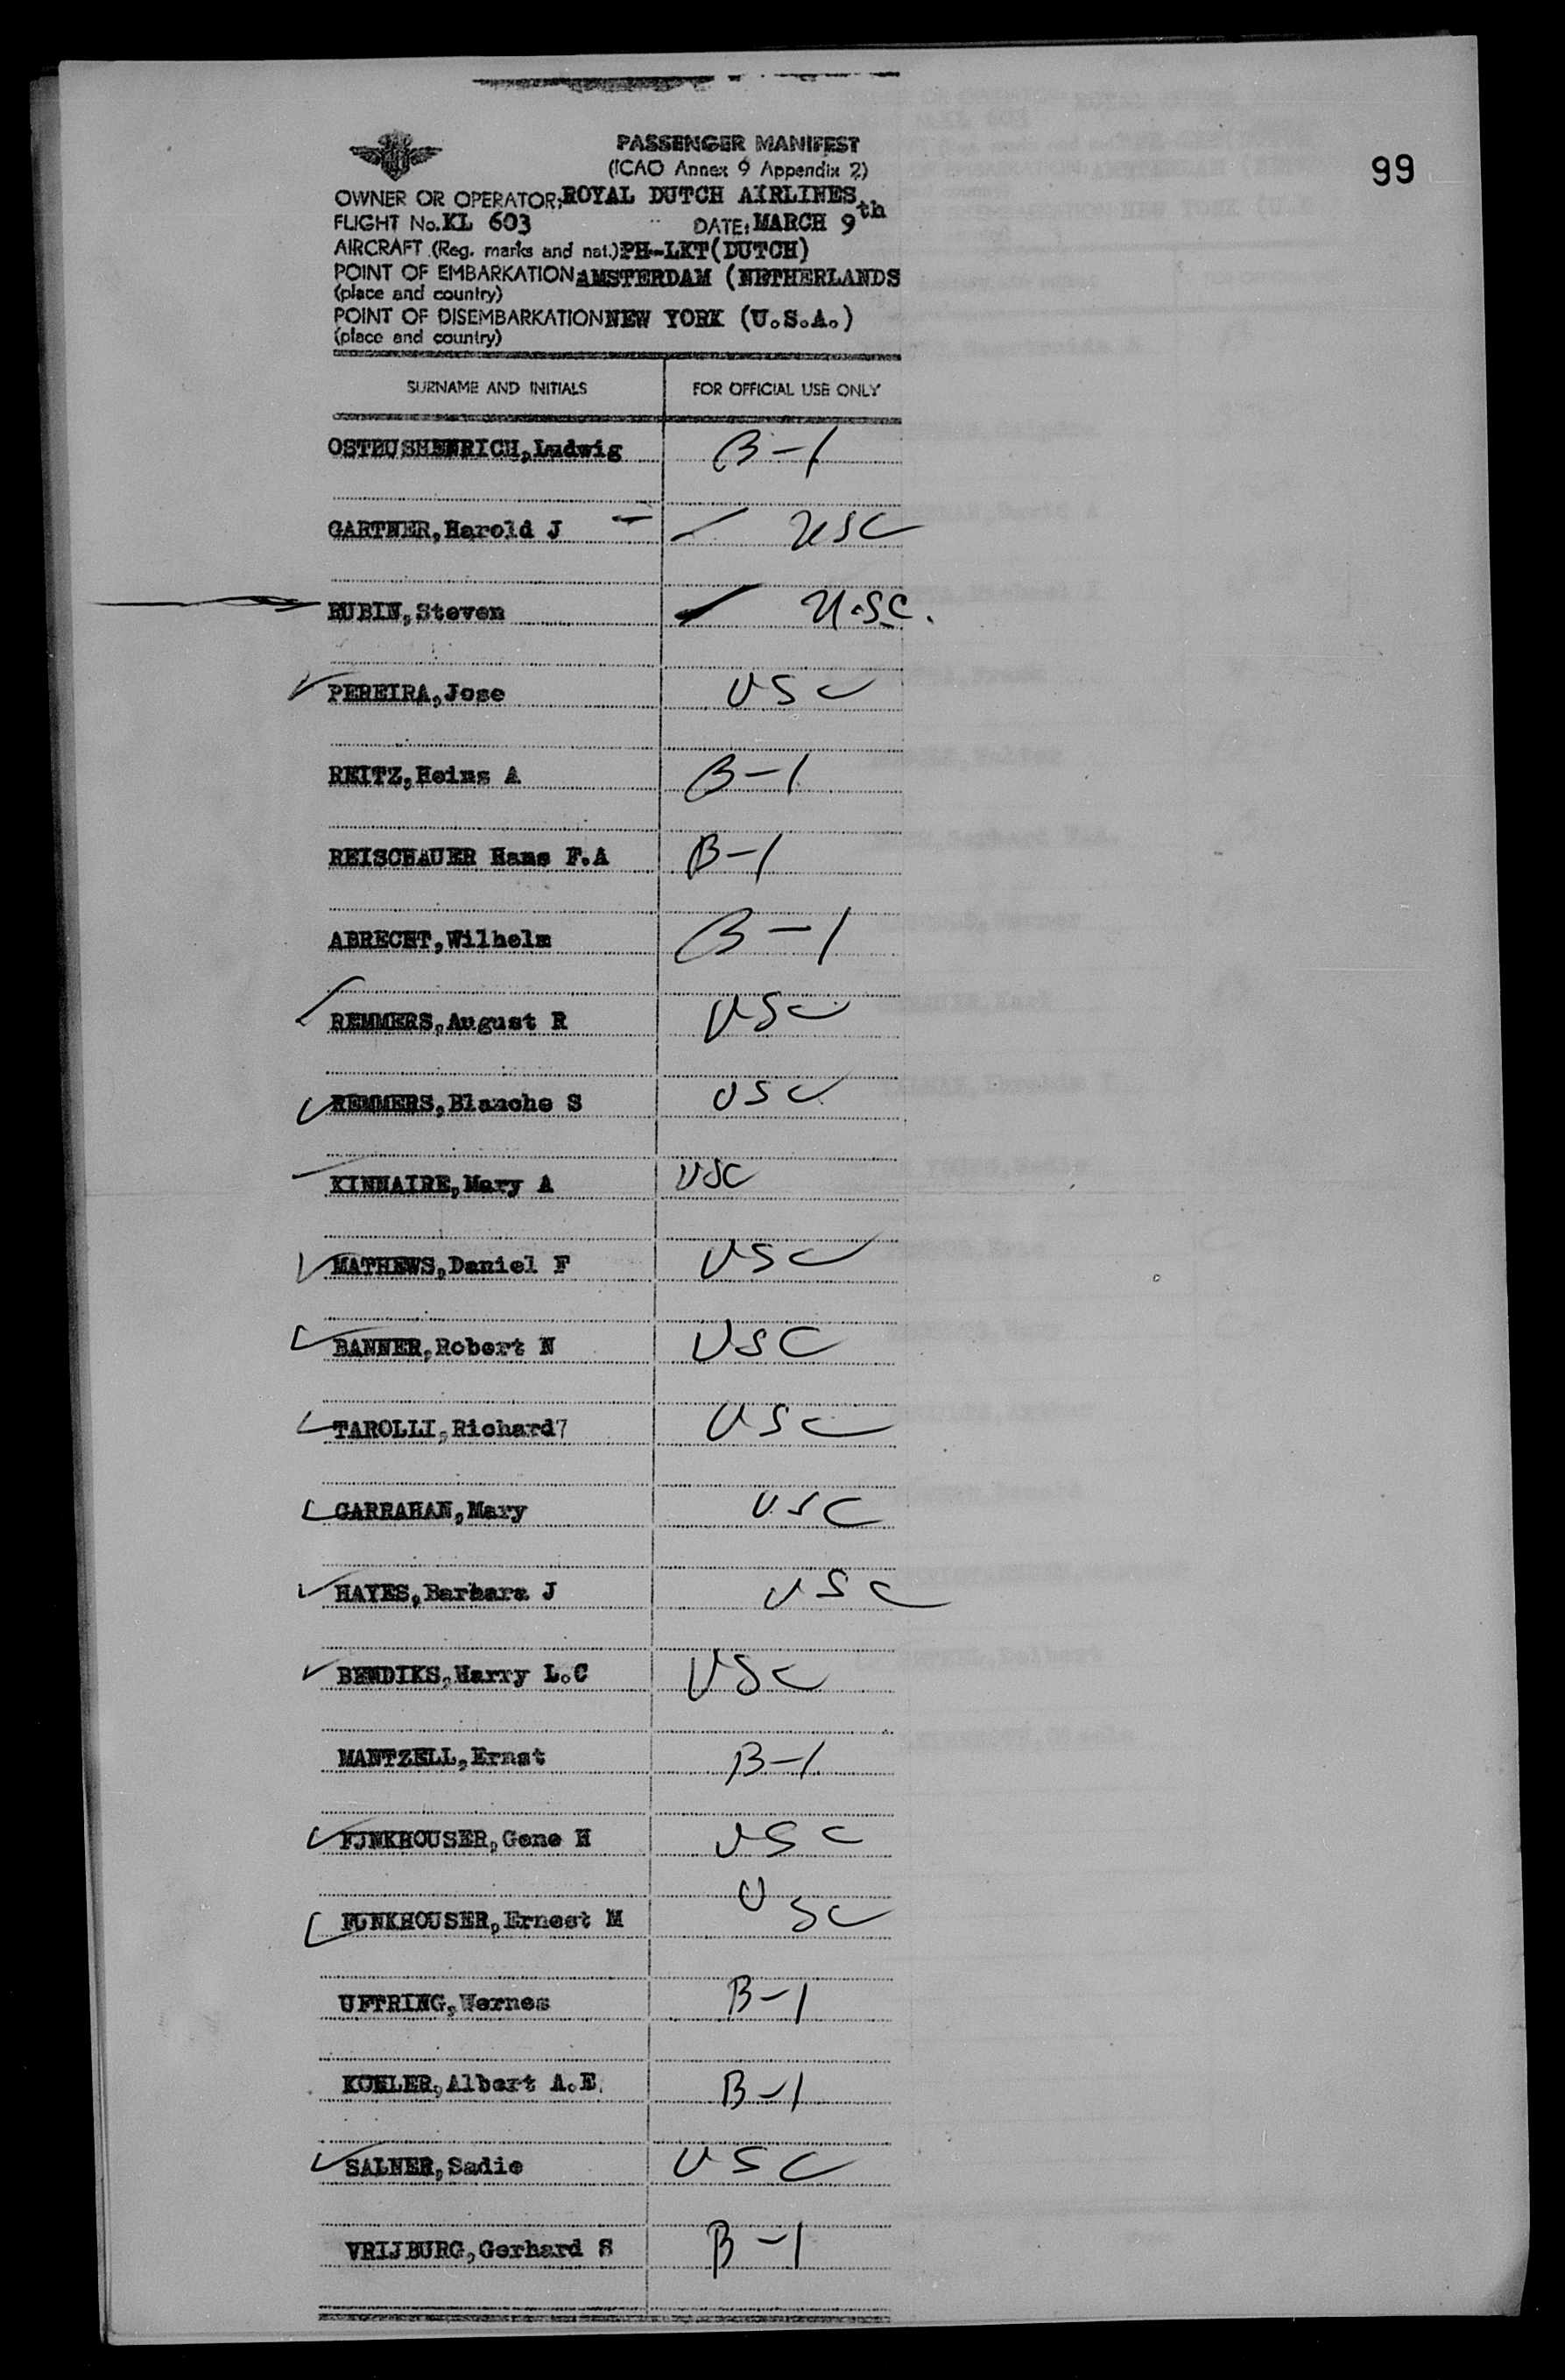 99
PASSENGER MANIFEST
(ICAO Annex 9 Appendix 2)
OWNER OR OPERATOR: ROYAL DUTCH AIRLINES
FLIGHT No. KL 603 DATE: MARCH 9th
AIRCRAFT (Reg. marks and nat.) PH-LKT(DUTCH)
POINT OF EMBARKATION AMSTERDAM (NETHERLANDS
(place and country)
POINT OF DISEMBARKATION NEW YORK (U.S.A.)
(place and country)
SURNAME AND INITIALS FOR OFFICIAL USE ONLY
Ludwig B-1
GARTNER, Harold J USC
RUBIN, Steven U.S.C.
PEREIRA, Jose USC
REITZ, Heinz A B-1
REISCHAUER Hans F.A B-1
ABRECHT, Wilhelm B-1
REMMERS, August R USC
REMMERS, Blanche S USC
KINNAIRE, Mary A USC
MATHEWS, Daniel F USC
BANNER, Robert N USC
TAROLLI, Richard USC
GARRAHAN, Mary USC
HAYES, Barbara J USC
BENDIKS, Harry L.C USC
MANTZELL, Ernst B-1
FUNKHOUSER, Gene H USC
FUNKHOUSER, Ernest M USC
UFTRING, Wernes B-1
KOHLER, Albert A.E. B-1
SALNER, Sadie USC
VRIJBURG, Gerhard S B-1